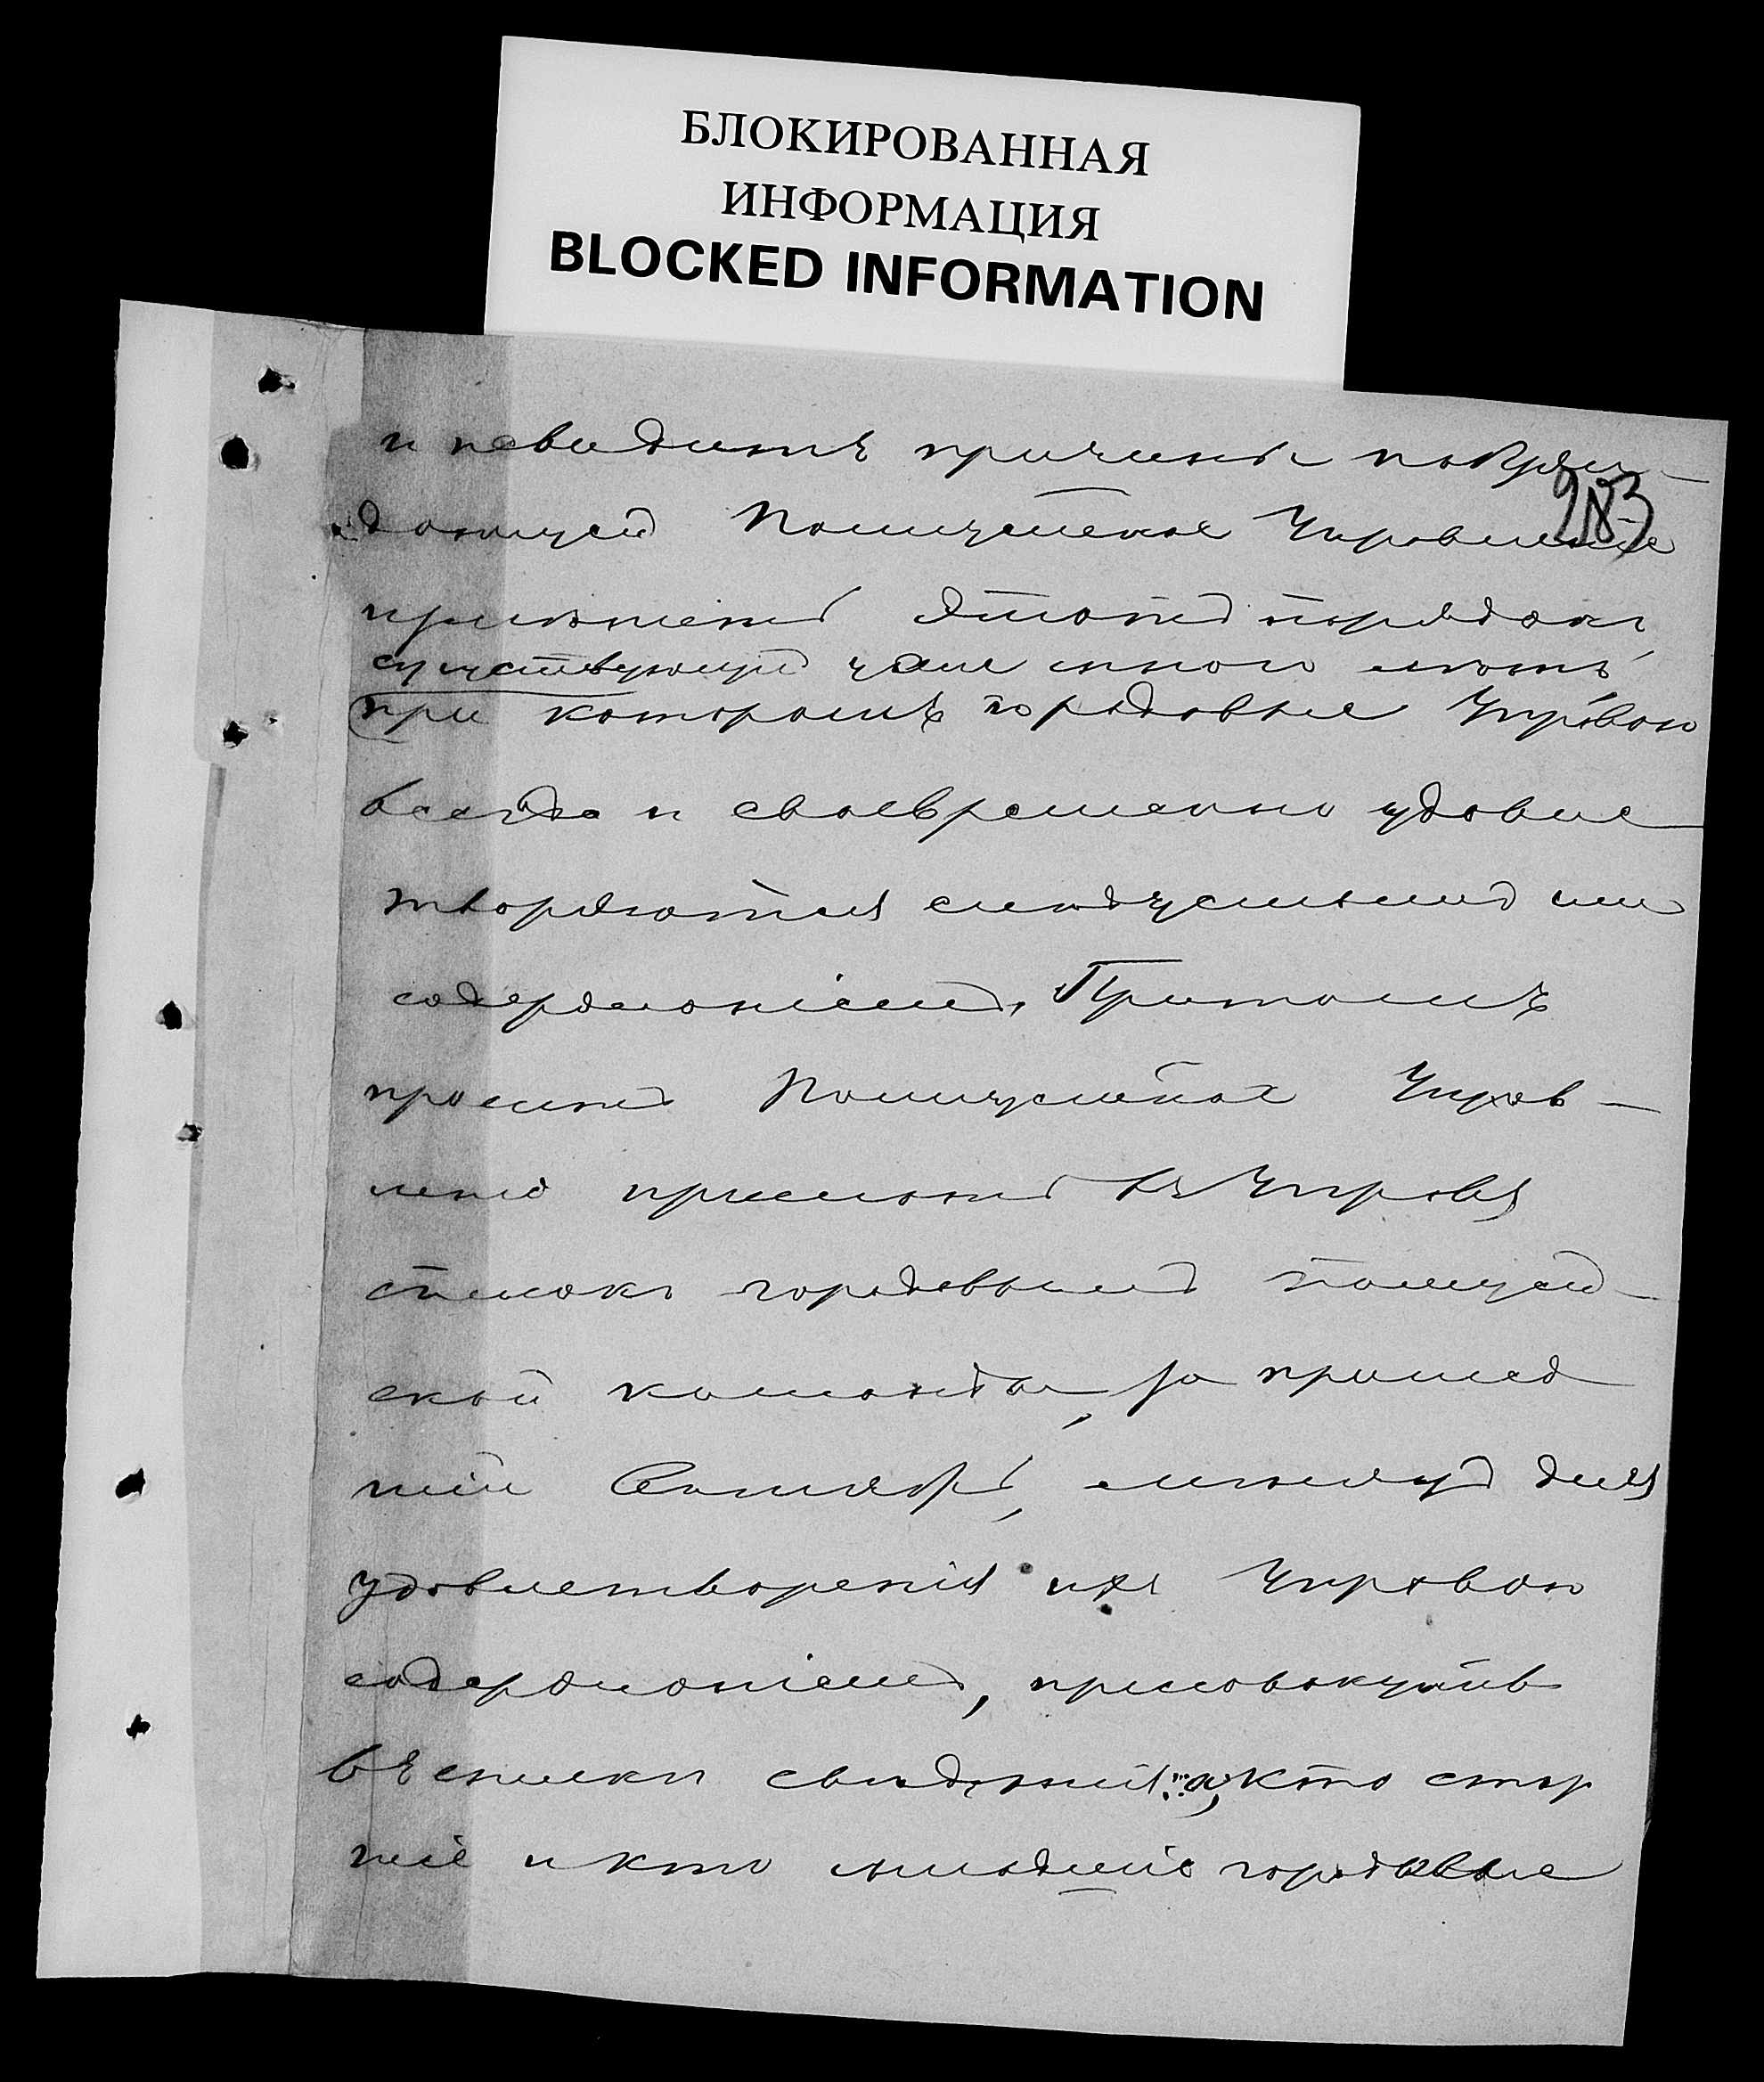 БЛОКИРОВАННАЯ
ИНФОРМАЦИЯ
BLOCKED INFORMATION
283
и невидитъ причины побуж-
дающей Полицейское Управление
этотъ порядокъ
существующій уже много лѣтъ,
при которомъ городовые Управою
всегда и своевременно удовле
творяются слѣдуемымъ им
содержаніемъ, Притомъ
проситъ Полицейское Управ-
леніе прислать въ Управу
списокъ городовымъ полицей-
ской команды, за прошед
шій Октябрь мѣсяцъ для
удовлетворенія ихъ Управою
содержаніемъ, присовокупивъ
въ списки свѣдѣнія, кто стар
шіе и кто младшіе городовые